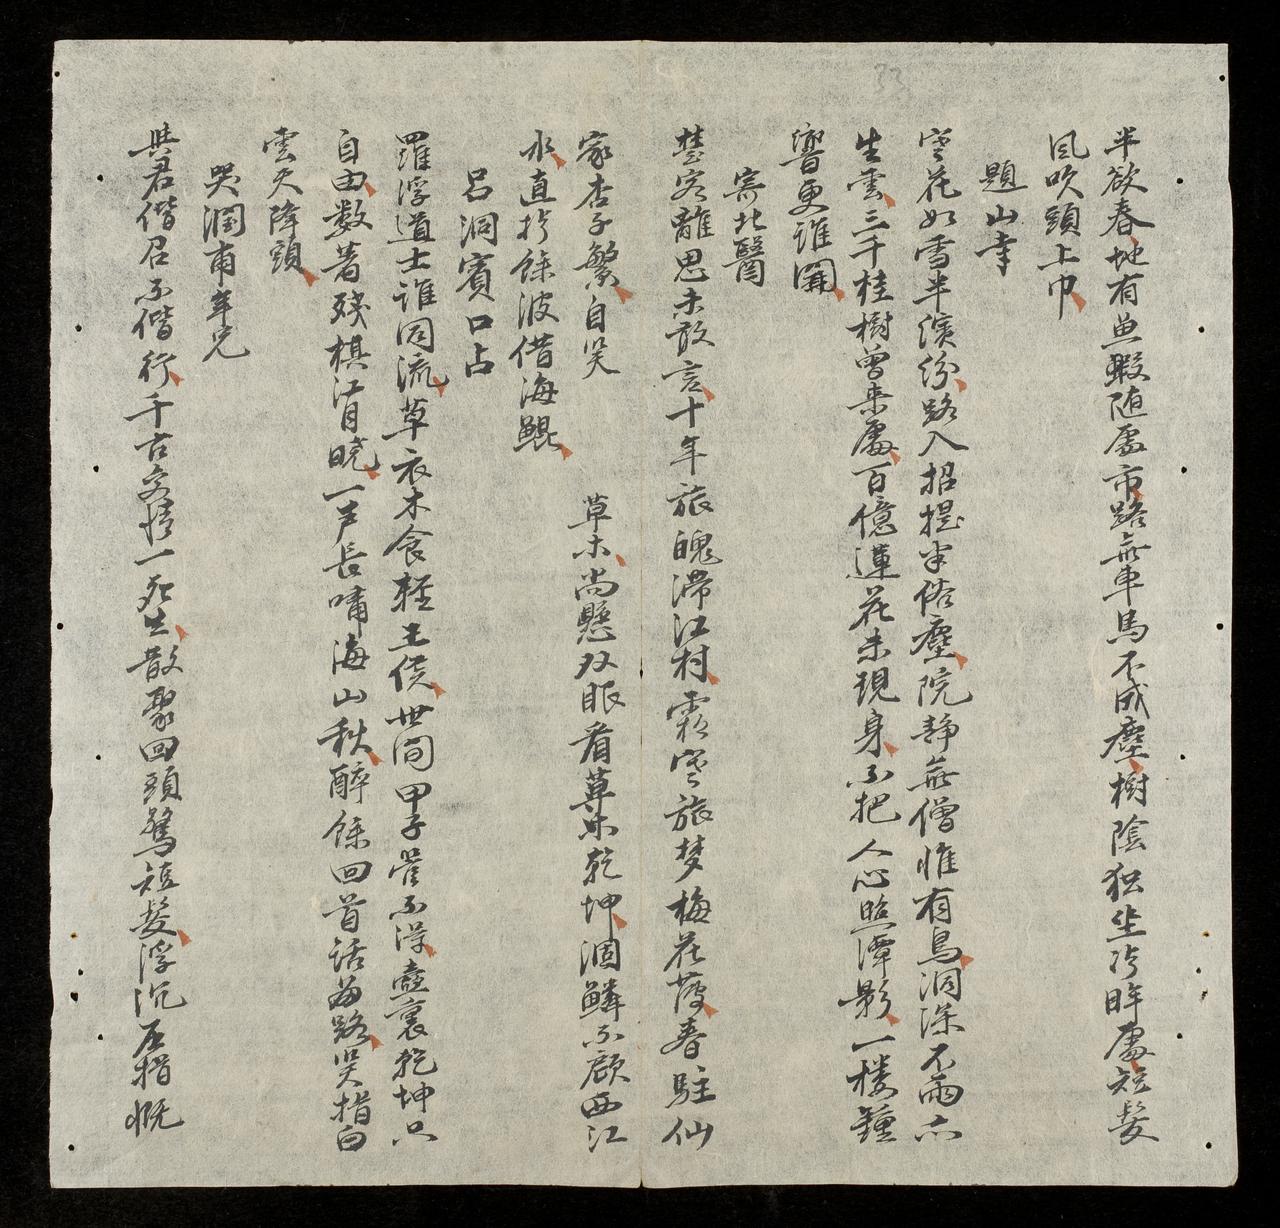 半欲春地有魚蝦随處市路無車馬不成塵樹陰独坐冷眸處短髮
風吹頭上巾
題山寺
空花如雪半濱紛路入招提半俗塵院静無僧惟有鳥洞深不雨亦
生雲三千桂樹曾来處百億蓮花未現身不把人心照潭影一楼鐘
響更誰聞
寄北醫
楚客離思未敢言十年旅魄滞江村霜空旅梦梅花落春駐仙
家杏子繁自笑 草木尚懸双眼看草木乾坤涸鱗不顧西江
水直抒餘波借海鯤
呂洞賓口占
羅浮道士誰同流草衣木食輕王侯世間甲子管不得壺裏乾坤只
自由数著殘棋江月暁一声長嘯海山秋醉餘回首話帰路笑指白
雲天降頭
哭潤甫年兄
與君偕召不偕行千古交情一死生散聚回頭驚短髮浮沉屈指慨